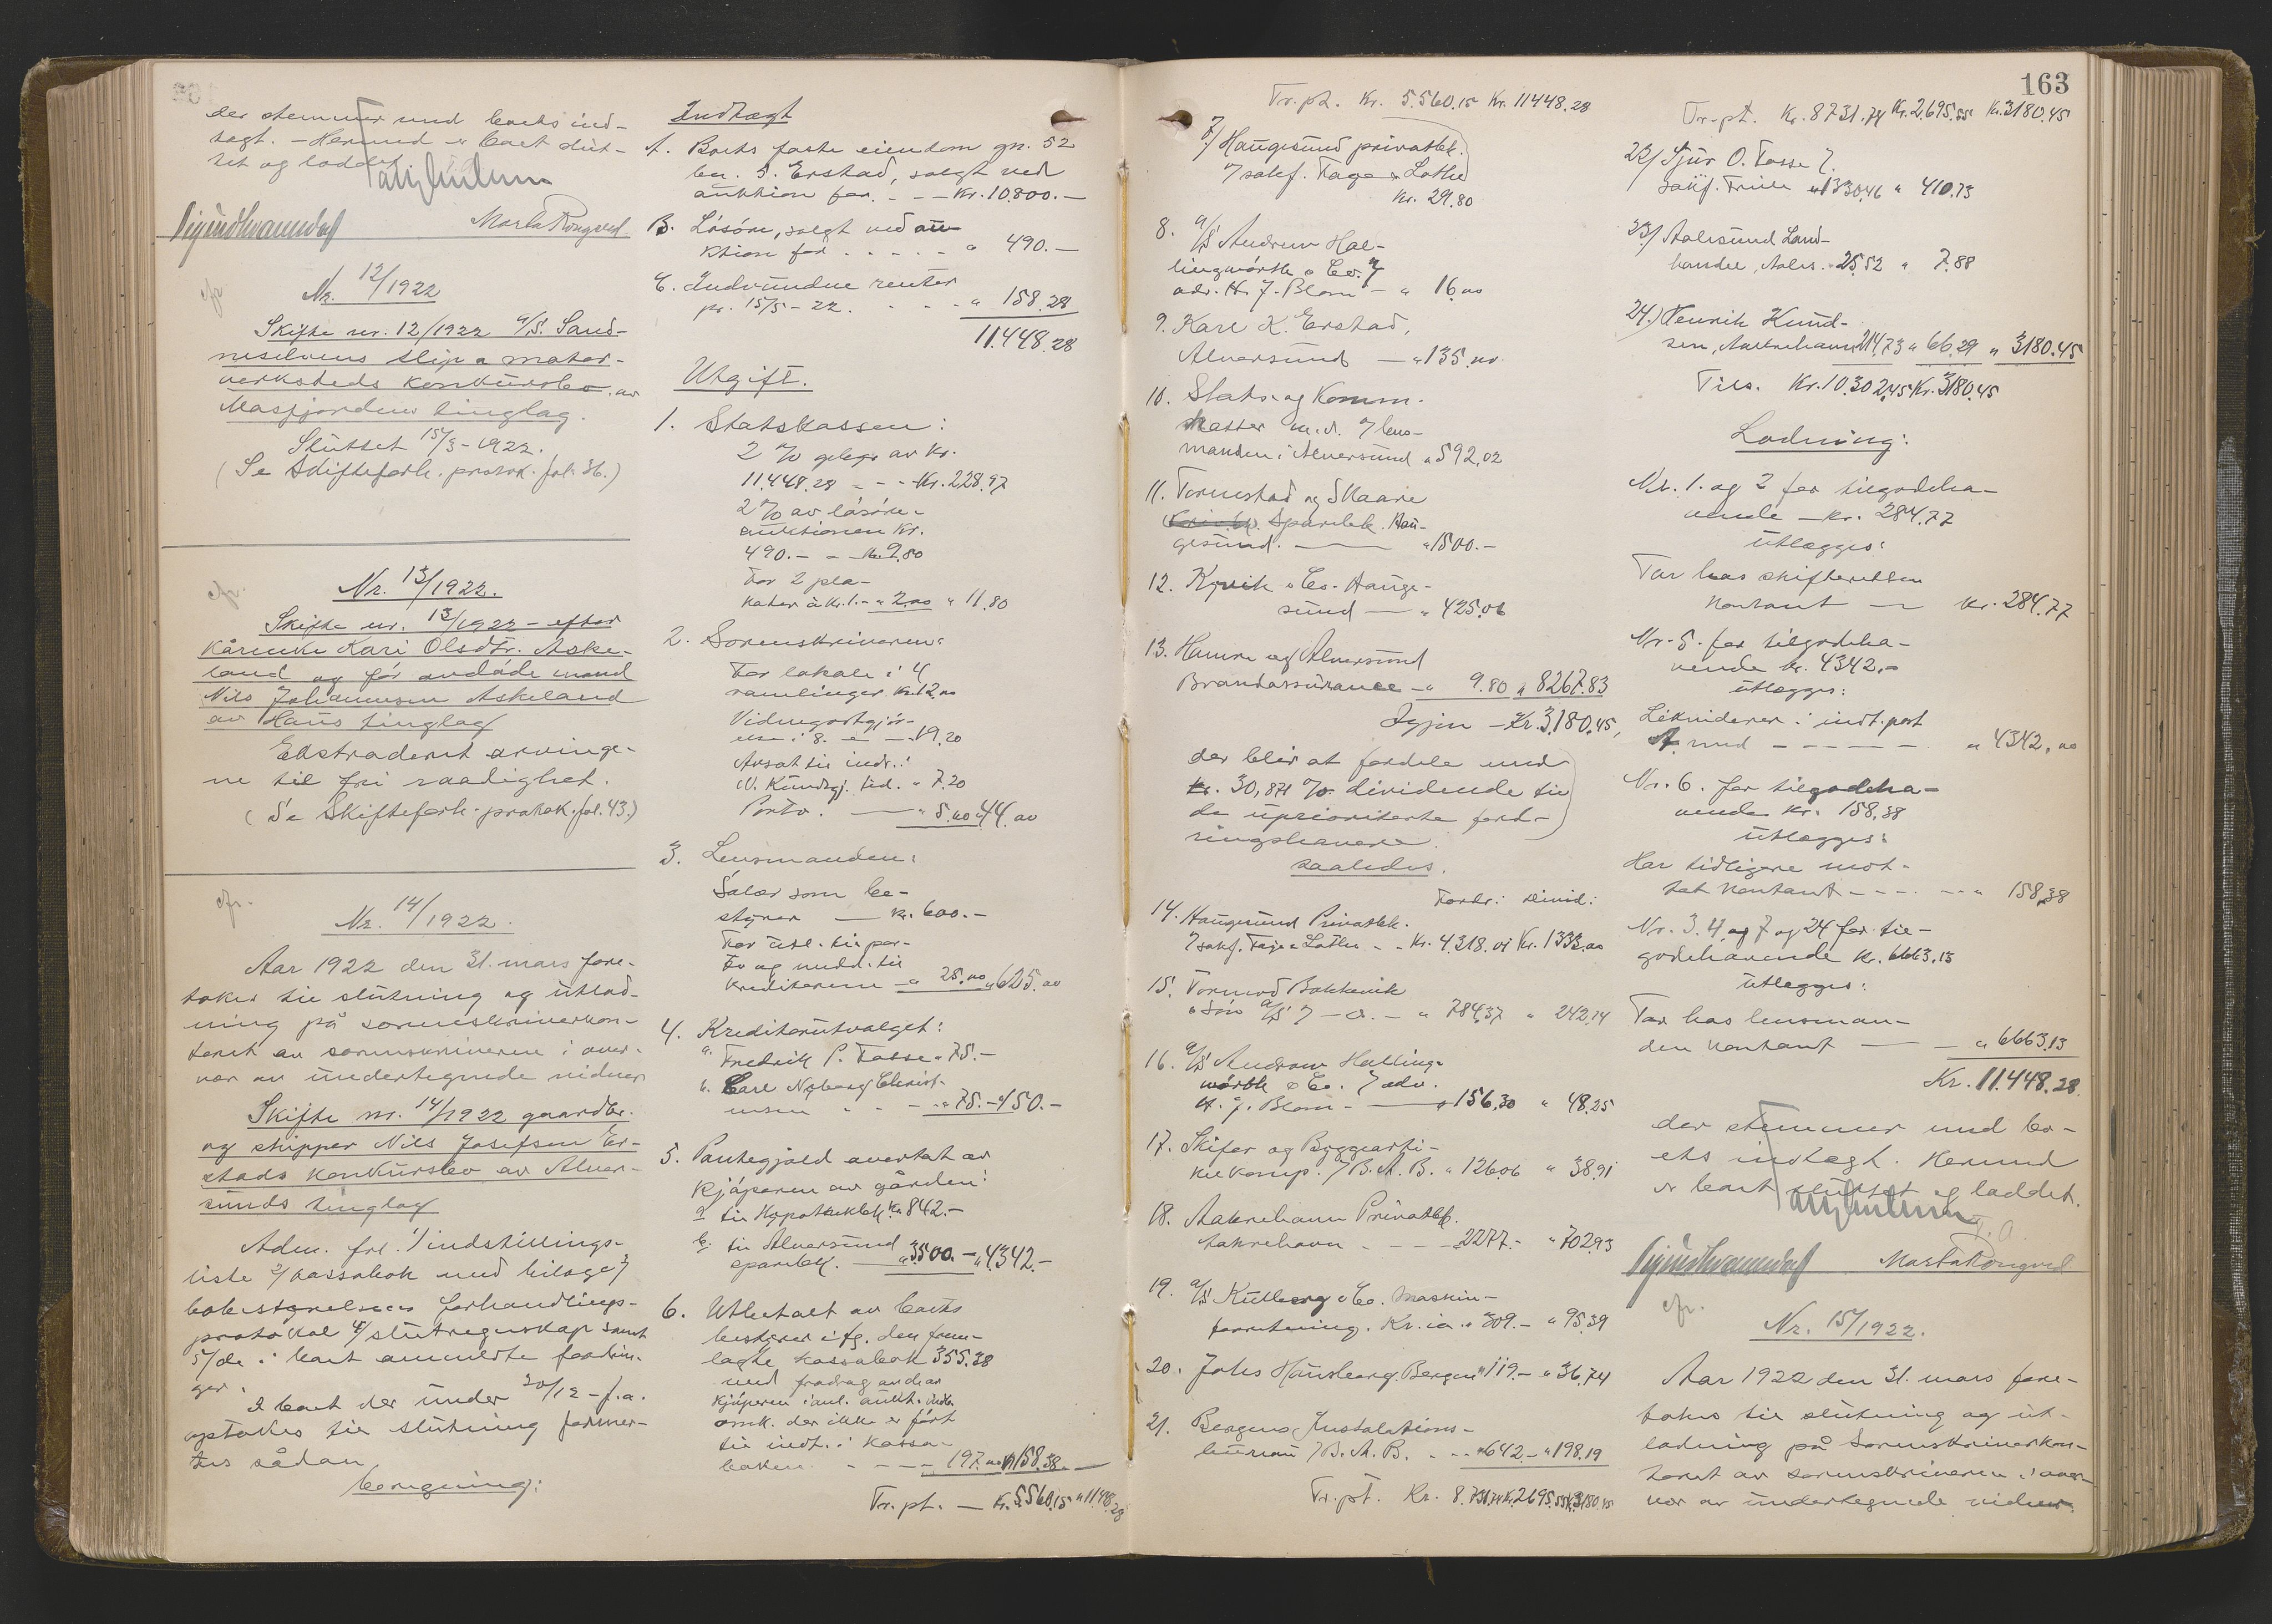 der stemmer med boets ind-
tægt. - Hermed er boet slut-
tet og loddet.
Marta Rongved
Nr. 12/1922
Skifte nr. 12/1922 a/s. Sand-
neselvens slip & motor-
verksteds konkursbo av
Masfjordens tinglag.
Sluttet 15/3-1922.
(Se Skifteforh. protok. fol. 36.)
Nr. 13/1922.
Skifte nr. 13/1922 - efter
kårenke Kari Olsdtr. Aske-
land og før avdøde mand
Nils Johannessen Askeland
av Haus tinglag
Ekstradert arvinge-
ne til fri raadighet.
(Se Skifteforh. protok. fol. 43.)
Nr. 14/1922.
Aar 1922 den 31. mars fore-
tokes til slutning og utlod-
ning på sorenskriverkon-
toret av sorenskriveren i over-
vær av undertegnede vidner
Skifte nr. 14/1922 gaardbr.
og skipper Nils Josefsen Er-
stads konkursbo av Alver-
sunds tinglag
Adm. frl. 1/ indstillings-
liste 2/ kassabok med bilage 3/
bobestyrelsens forhandlings-
protokol 4/ slutregnskap samt
5/ de i boet anmeldte fordrin-
ger.
I boet der under 20/12 - f.a.
optokes til slutning former-
tes sådan
beregning:
Indtægt
A. Boets faste eiendom gn. 52
bn. 5. Erstad, solgt ved
auktion for. - - Kr. 10.800.-
B. Løsøre, solgt ved au-
ktion for . . . . . " 490.-
C. Indvundne renter
pr. 15/5-22. . . . " 158.28
11.448.28
Utgift.
1. Statskassen:
2 % gebyr av kr.
11.448.28 - - - Kr. 228.97
2 % av løsøre-
auktionen kr.
490.- - - kr. 9.80
For 2 pla-
kater à kr. 1.- " 2.00 " 11.80
2. Sorenskriveren:
For lokale i 4
samlinger kr. 12.00
Vidnegodtgjø-
else i 8. - - 19.20
Avsat til indr. i
N. Kundgj. tid. " 7.20
Porto. — " 5.60 " 44.00
3. Lensmanden:
Salær som be-
styrer — kr. 600.-
For utl. til por-
to og medd. til
kreditorerne - " 25.00 " 625.00
4. Kreditorutvalget:
a. Fredrik P. Fosse " 75.-
b. Carl Nyberg Christ-
ensen " - - " 75.- " 150.-
5. Pantegjæld overtat av
kjøperen av gården:
a til Hypotekbk. Kr. 842.-
b. til Alversund
sparebk. — " 3500.- " 4342.-
6. Utbetalt av boets
bestyrer ifg. den frem-
lagte kassabok 355.38
med fradrag av de av
kjøperen i anl. aukt. indb.
omk. der ikke er ført
til indt. i kassa-
boken. - - - - 197.00 " 158.38
Tr. pt. — Kr. 5560.15 " 11448.28
163
Tr. pt. Kr. 5.560.15 Kr. 11448.28
7/ Haugesund privatbk.
7 sakf. Fage & Lothe
Kr. 29.80
8. a/s Andrew Hol-
lingworth & Co. 7
adv. H. J. Blom - " 16.00
9. Karl K. Erstad,
Alversund — " 135.00
10. Stats- og Komm.
skatter m. v. 7 lens-
manden i Alversund " 592.02
11. Tormstad og Skaare
Sparebk. Hau-
gesund. — " 1500.-
12. Kyvik & Co. Hauge-
sund — " 425.06
13. Hamre og Alversund
Brandassurance - " 9.80 " 8267.83
Igjen - Kr. 3.180.45,
der blir at fordele med
30,871 % dividende til
de uprioriterte ford-
ringshavere.
saaledes.
Fordr: Divid:
14. Haugesund Privatbk.
7 sakf. Fage & Lothe - - Kr. 4318.01 Kr. 1333.00
15. Tormod Bakkevik
& Søn a/s 7 - d. - " 784.37 " 242.14
16. a/s Andrew Holling-
worth & Co. 7 adv.
H. J. Blom - — " 156.30 " 48.25
17. Skifer og Byggearti-
kelkomp. 7 B. A. B. " 126.06 " 38.91
18. Aakrehavn Privatbk.
Aakrehavn - — " 2277.- " 702.93
19. a/s Kullberg & Co. Maskin-
forretning. Kr. ia " 309.- " 95.39
20. Johs Hansborg. Bergen " 119.- " 36.74
21. Bergens Instalations-
bureau 7 B. A. B. - - " 642.- " 198.19
Tr. pt. Kr. 8.731.74 Kr. 2695.55 Kr. 3180.45
Tr. pt. Kr. 8731.74 Kr. 2.695.55 Kr. 3180.45
22/ Sjur O. Fosse 7.
sakf. Friile " 1330.46 " 410.73
23/ Aalesund Land-
handel, Aales. " 25.52 " 7.88
24.) Henrik Knud-
sen, Aakrehavn 214.73 " 66.29 " 3180.45
Tils. Kr. 10.302.45 Kr. 3180.45
Lodning:
Nr. 1. og 2 for tilgodeha-
vende - kr. 284.77
utlægges:
Tar hos skifteretten
kontant — Kr. 284.77
Nr. 5. for tilgodeha-
vende kr. 4342.-
utlægges:
Likviderer i indt. post
A med - - - - - " 4342.00
Nr. 6. for tilgodeha-
vende kr. 158.38
utlægges:
Har tidligere mot-
tat kontant - - - - - " 158.38
Nr. 3. 4 og 7 og 24 for til-
godehavende kr. 6663.13
utlægges:
Tar hos lensman-
den kontant — " 6663.13
Kr. 11.448.28.
der stemmer med bo-
ets indtægt. Hermed
er boet sluttet og loddet.
Marta Rongved
Nr. 15/1922.
Aar 1922 den 31. mars fore-
tokes til slutning og ut-
lodning på Sorenskriverkon-
toret av sorenskriveren i over-
vær av undertegnede vidner: